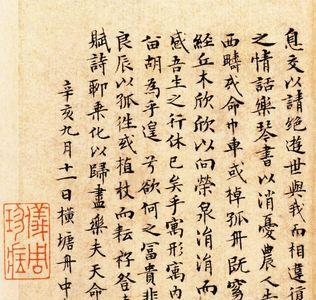 息交以請絕遊世與我而相違
之情話樂琴書以消憂農人
西疇或命巾車或棹孤舟既窈
經丘木欣欣以向榮泉涓涓而
感吾生之行休已矣乎寓形寓內
留胡為乎遑兮欲何之富貴非
良辰以孤往或植杖而耘耔登
賦詩聊乘化以歸盡樂夫天命
辛亥九月十一日橫塘舟中
儀周珍藏